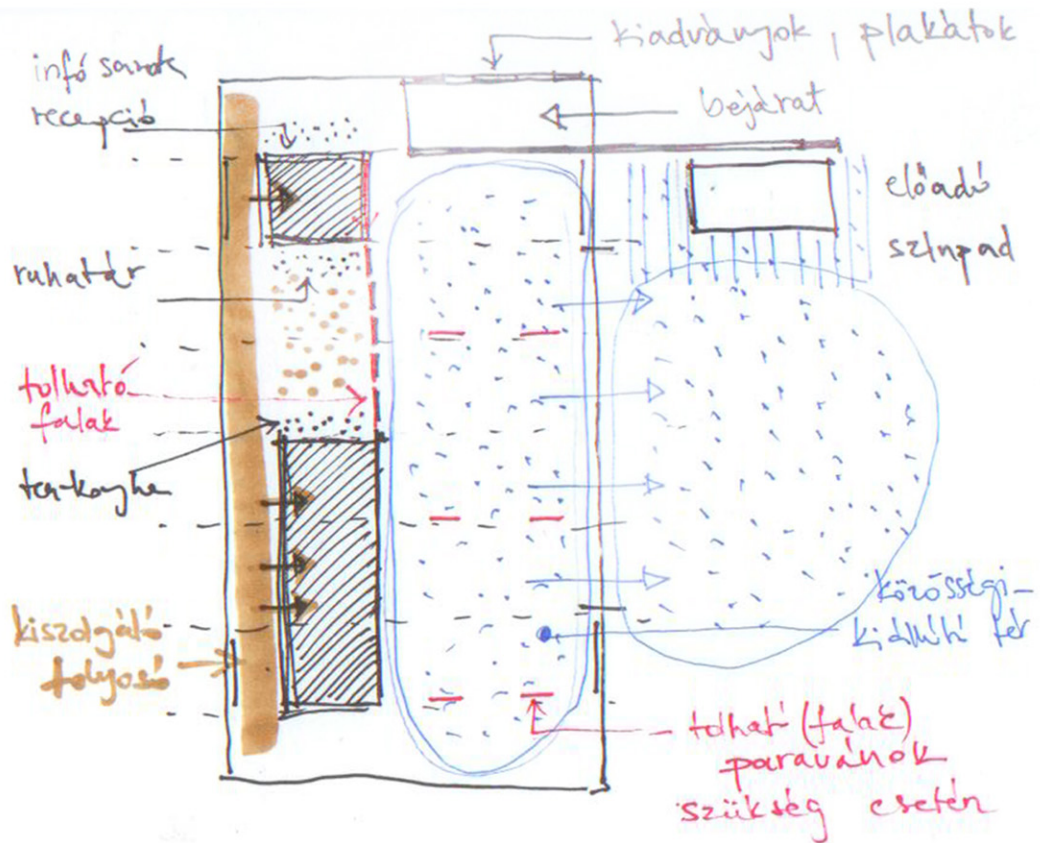 kiadványok, plakátok
infó sarok
recepció
bejárat
előadó
színpad
ruhatár
tolható
falak
tea-konyha
kiszolgáló
folyosó
közösségi-
kiállító tér
tolható (falak)
paravánok
szükség esetén